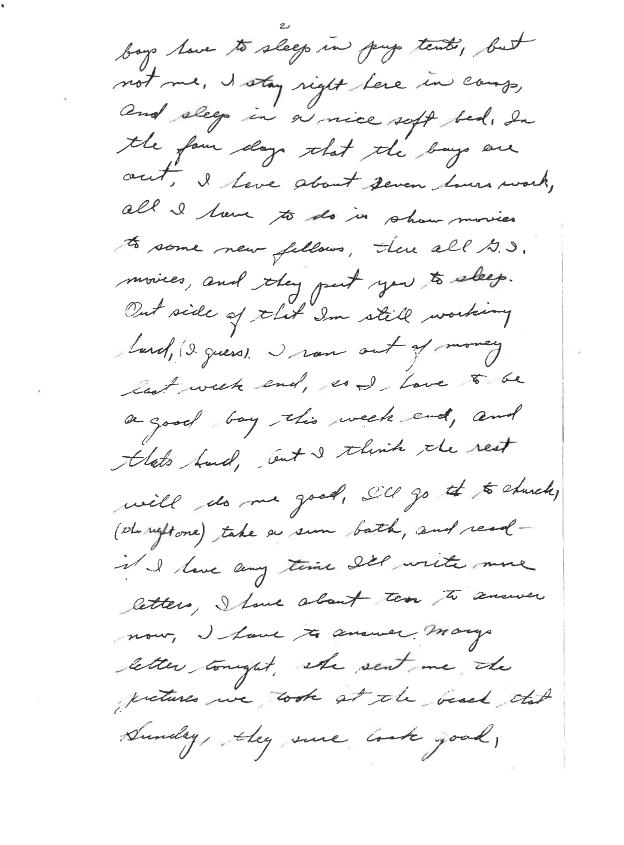 2
boys have to sleep in pup tents, but
not me. I stay right here in camp,
and sleep in a nice soft bed. In
the four days that the boys are
out, I have about seven hours work,
all I have to do is show movies
to some new fellows, there all G.I.
movies, and they put you to sleep.
Out side of that Im still working
hard, (I guess). I ran out of money
last week end, so I have to be
a good boy this week end, and
thats hard, but I think the rest
will do me good, I'll go to church,
(the right one) take a sun bath, and read –
if I have any time I'll write more
letters, I have about ten to answer
now, I have to answer Marys
letter tonight, she sent me the
pictures we took at the beach that
Sunday, they sure look good,